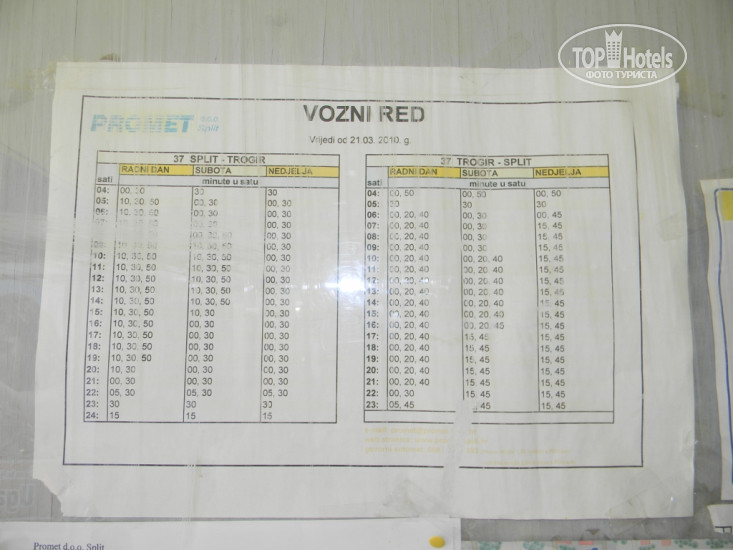 TOP Hotels
ФОТО ТУРИСТА
PROMET d.o.o. Split
VOZNI RED
Vrijedi od 21.03. 2010. g.
37 SPLIT - TROGIR
RADNI DAN SUBOTA NEDJELJA
sati minute u satu
04: 00, 30 30 30
05: 10, 30, 50 00, 30 00, 30
06: 10, 30, 50 00, 30 00, 30
10, 30, 50 00, 30
00, 30, 50 00, 30
09: 10, 30, 50 10, 30, 50 00, 30
10: 10, 30, 50 10, 30, 50 00, 30
11: 10, 30, 50 10, 30, 50 00, 30
12: 10, 30, 50 10, 30, 50 00, 30
13: 10, 30, 50 10, 30, 50 00, 30
14: 10, 30, 50 10, 30, 50 00, 30
15: 10, 30, 50 10, 30 00, 30
16: 10, 30, 50 00, 30 00, 30
17: 10, 30, 50 00, 30 00, 30
18: 10, 30, 50 00, 30 00, 30
19: 10, 30, 50 00, 30 00, 30
20: 10, 30 00, 30 00, 30
21: 00, 30 00, 30 00, 30
22: 05, 30 05, 30 05, 30
23: 30 30 30
24: 15 15 15
37 TROGIR - SPLIT
RADNI DAN SUBOTA NEDJELJA
sati minute u satu
04: 00, 50 00, 50 00, 50
05: 30 30 30
06: 00, 20, 40 00, 30 00, 45
07: 00, 20, 40 00, 30 15, 45
08: 00, 20, 40 00, 30 15, 45
09: 00, 20, 40 00, 30 15, 45
10: 00, 20, 40 00, 20, 40 15, 45
11: 00, 20, 40 00, 20, 40 15, 45
12: 00, 20, 40 00, 20, 40 15, 45
13: 00, 20, 40 00, 20, 40 15, 45
14: 00, 20, 40 00, 20, 40 15, 45
15: 00, 20, 40 00, 20, 40 15, 45
16: 00, 20, 40 00, 20, 45 15, 45
17: 00, 20, 40 15, 45 15, 45
18: 00, 20, 40 15, 45 15, 45
19: 00, 20, 40 15, 45 15, 45
20: 00, 20, 40 15, 45 15, 45
21: 00, 20, 40 15, 45 15, 45
22: 00, 30 15, 45 15, 45
23: 05, 45 45 15, 45
Promet d.o.o. Split